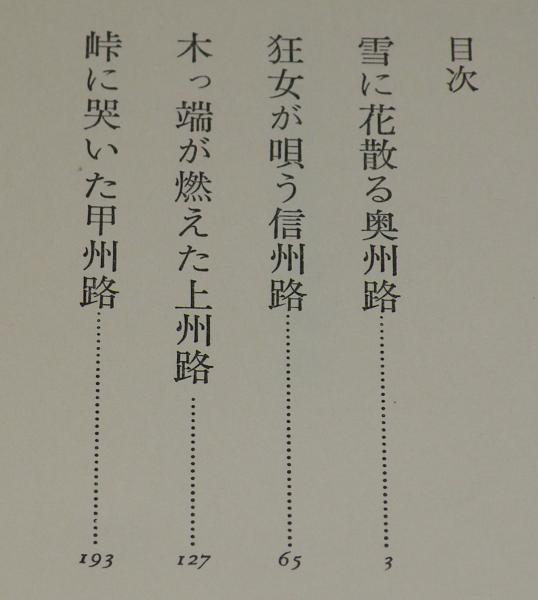 目次
雪に花散る奥州路……3
狂女が唄う信州路……65
木っ端が燃えた上州路……127
峠に哭いた甲州路……193